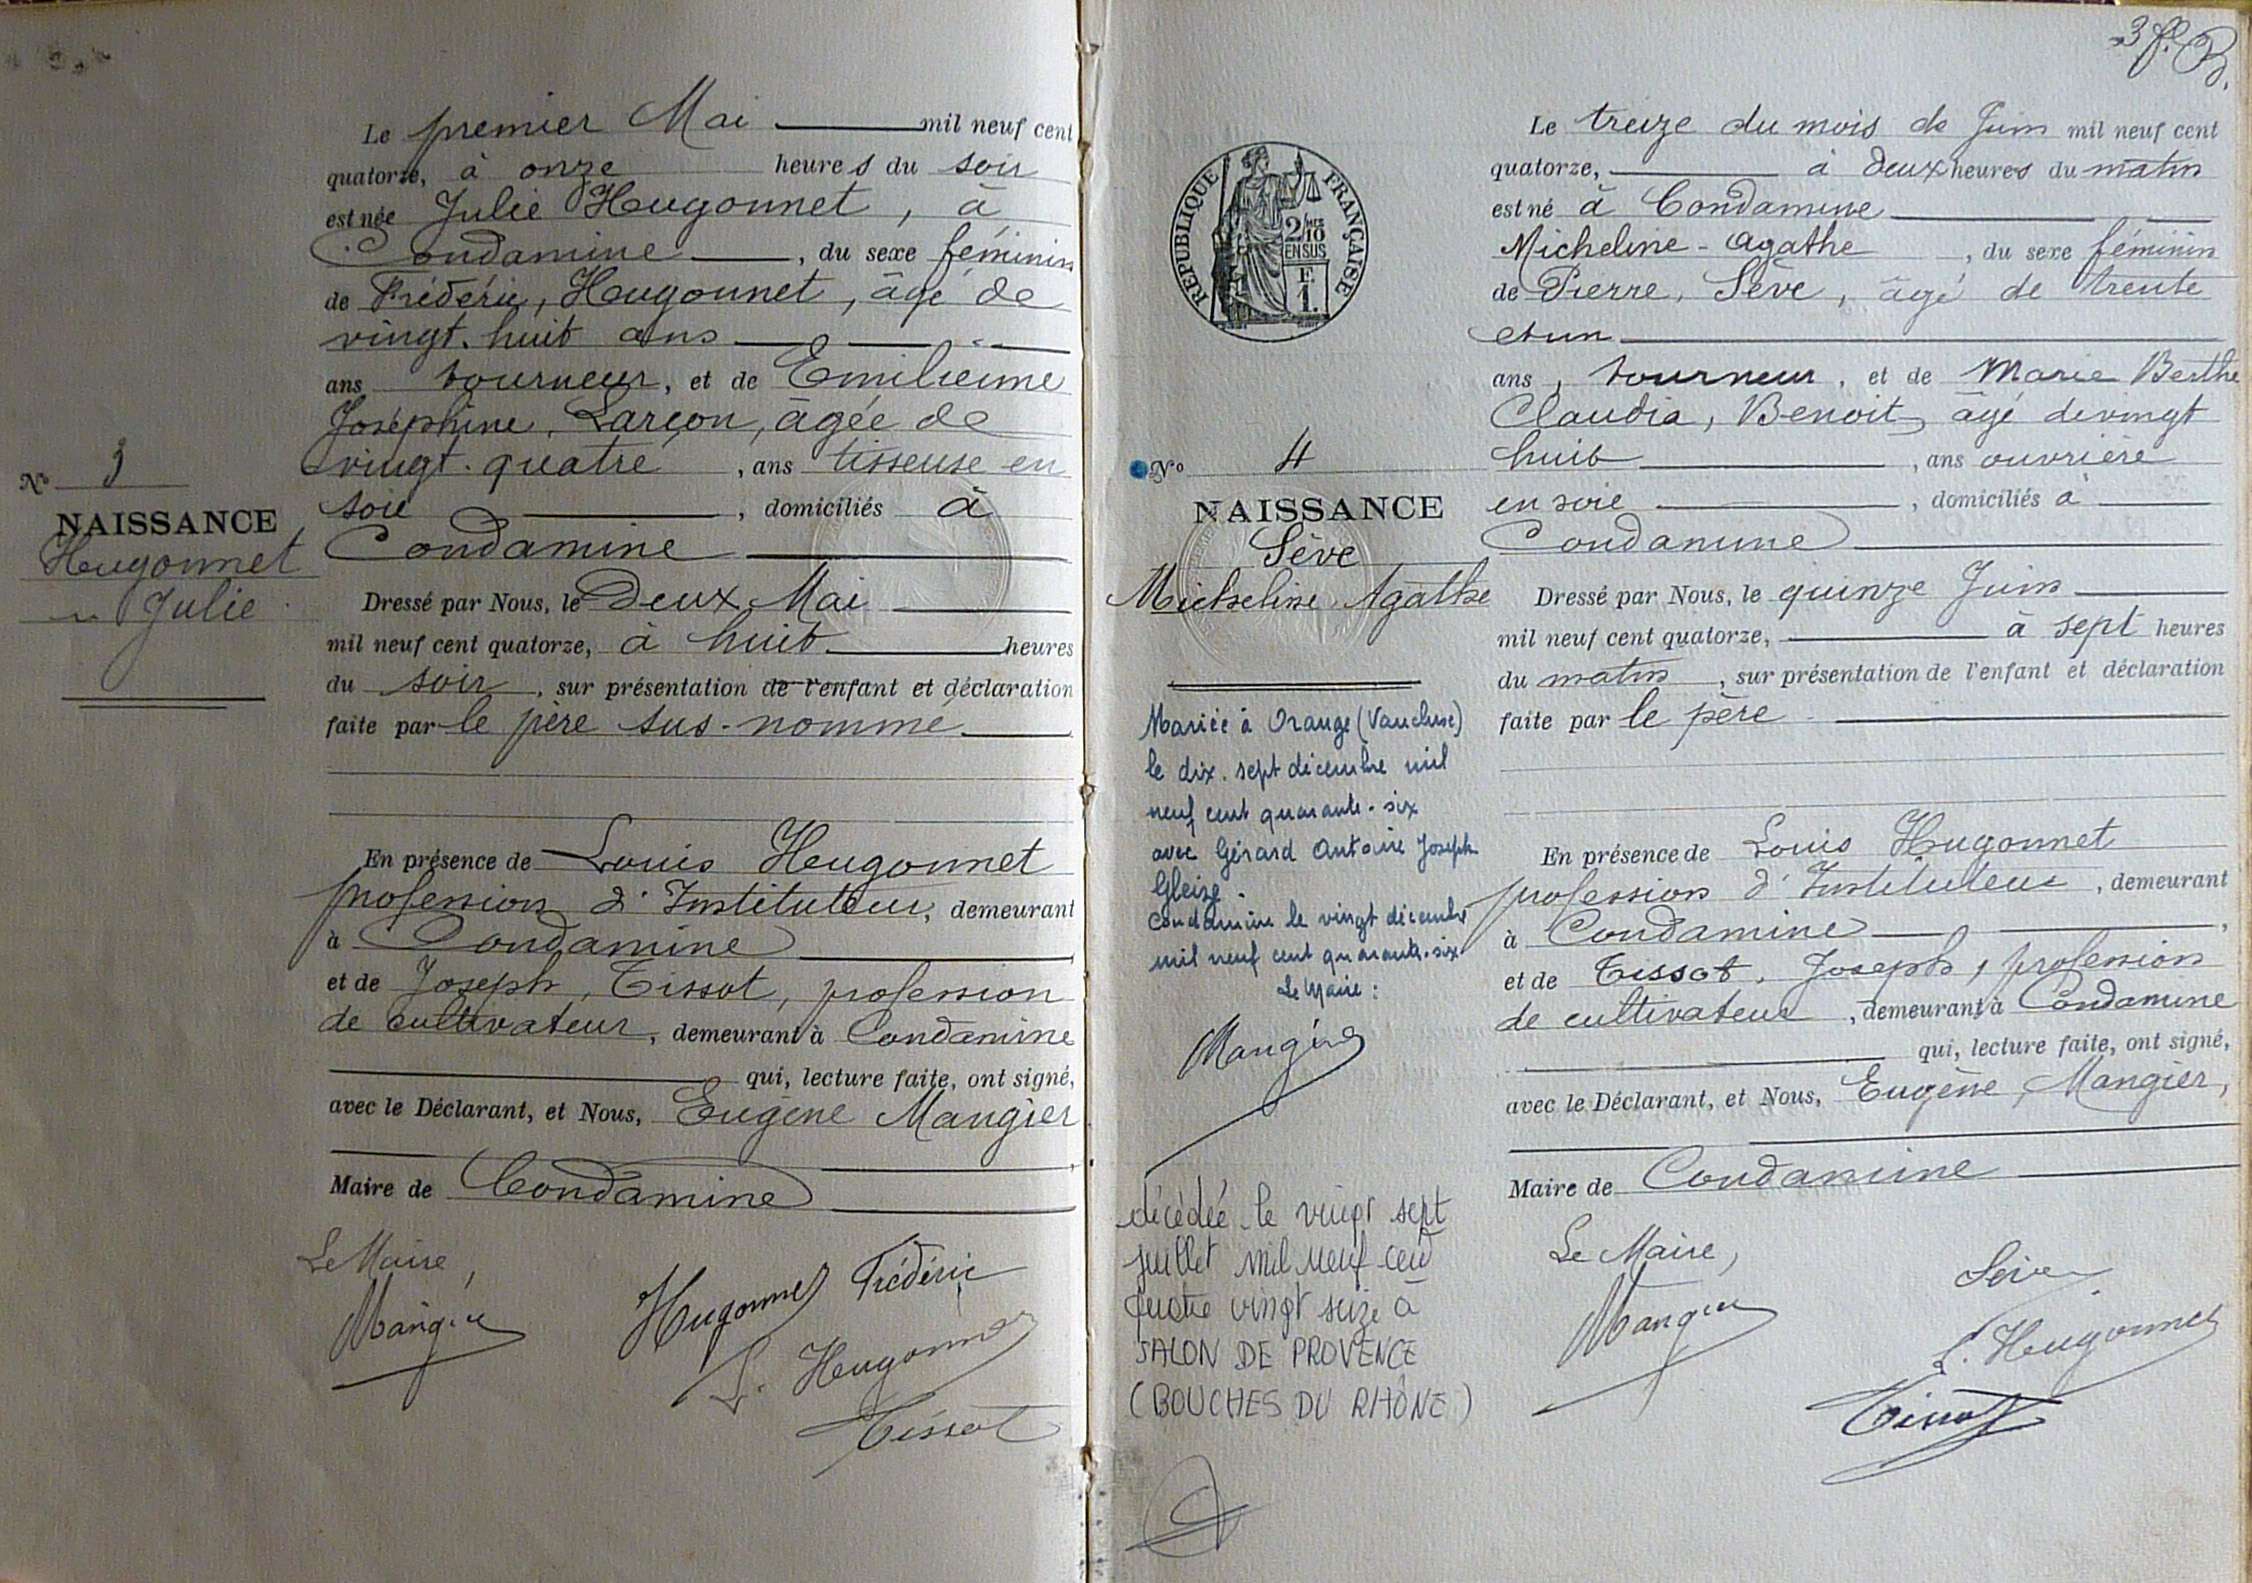 Le premier Mai mil neuf cent
quatorze, à onze heures du soir
est née Julie Hugonnet, à
Condamine, du sexe féminin
de Frédéric, Hugonnet, âgé de
vingt-huit ans
ans tourneur, et de Emilienne
Joséphine, Larçon, âgée de
vingt-quatre, ans tisseuse en
soie, domiciliés à
Condamine
No 3
NAISSANCE
Hugonnet
Julie
Dressé par Nous, le Deux Mai
mil neuf cent quatorze, à huit heures
du soir, sur présentation de l'enfant et déclaration
faite par le père sus-nommé
En présence de Louis Hugonnet
profession d'Instituteur, demeurant
à Condamine
et de Joseph, Tissot, profession
de cultivateur, demeurant à Condamine
qui, lecture faite, ont signé,
avec le Déclarant, et Nous, Eugène Mangier
Maire de Condamine
Le Maire,
Mangier
Hugonnet Frédéric
L. Hugonnet
Tissot
3 f.
RÉPUBLIQUE FRANÇAISE
2/10 MES
EN SUS
F
1.
No 4
NAISSANCE
Sève
Micheline Agathe
Mariée à Orange (Vaucluse)
le dix-sept décembre mil
neuf cent quarante-six
avec Gérard Antoine Joseph
Gleize.
Condamine le vingt décembre
mil neuf cent quarante-six
Le Maire:
Mangier
décédée le vingt sept
juillet mil neuf cent
quatre vingt seize à
SALON DE PROVENCE
(BOUCHES DU RHÔNE)
Le treize du mois de Juin mil neuf cent
quatorze, à deux heures du matin
est né à Condamine
Micheline-Agathe, du sexe féminin
de Pierre, Sève, âgé de trente
et un
ans, tourneur, et de Marie Berthe
Claudia, Benoit, âgé de vingt
huit, ans ouvrière
en soie, domiciliés à
Condamine
Dressé par Nous, le quinze Juin
mil neuf cent quatorze, à sept heures
du matin, sur présentation de l'enfant et déclaration
faite par le père
En présence de Louis Hugonnet
profession d'Instituteur, demeurant
à Condamine,
et de Tissot, Joseph, profession
de cultivateur, demeurant à Condamine
qui, lecture faite, ont signé,
avec le Déclarant, et Nous, Eugène, Mangier,
Maire de Condamine
Le Maire,
Mangier
Sève
L. Hugonnet
Tissot